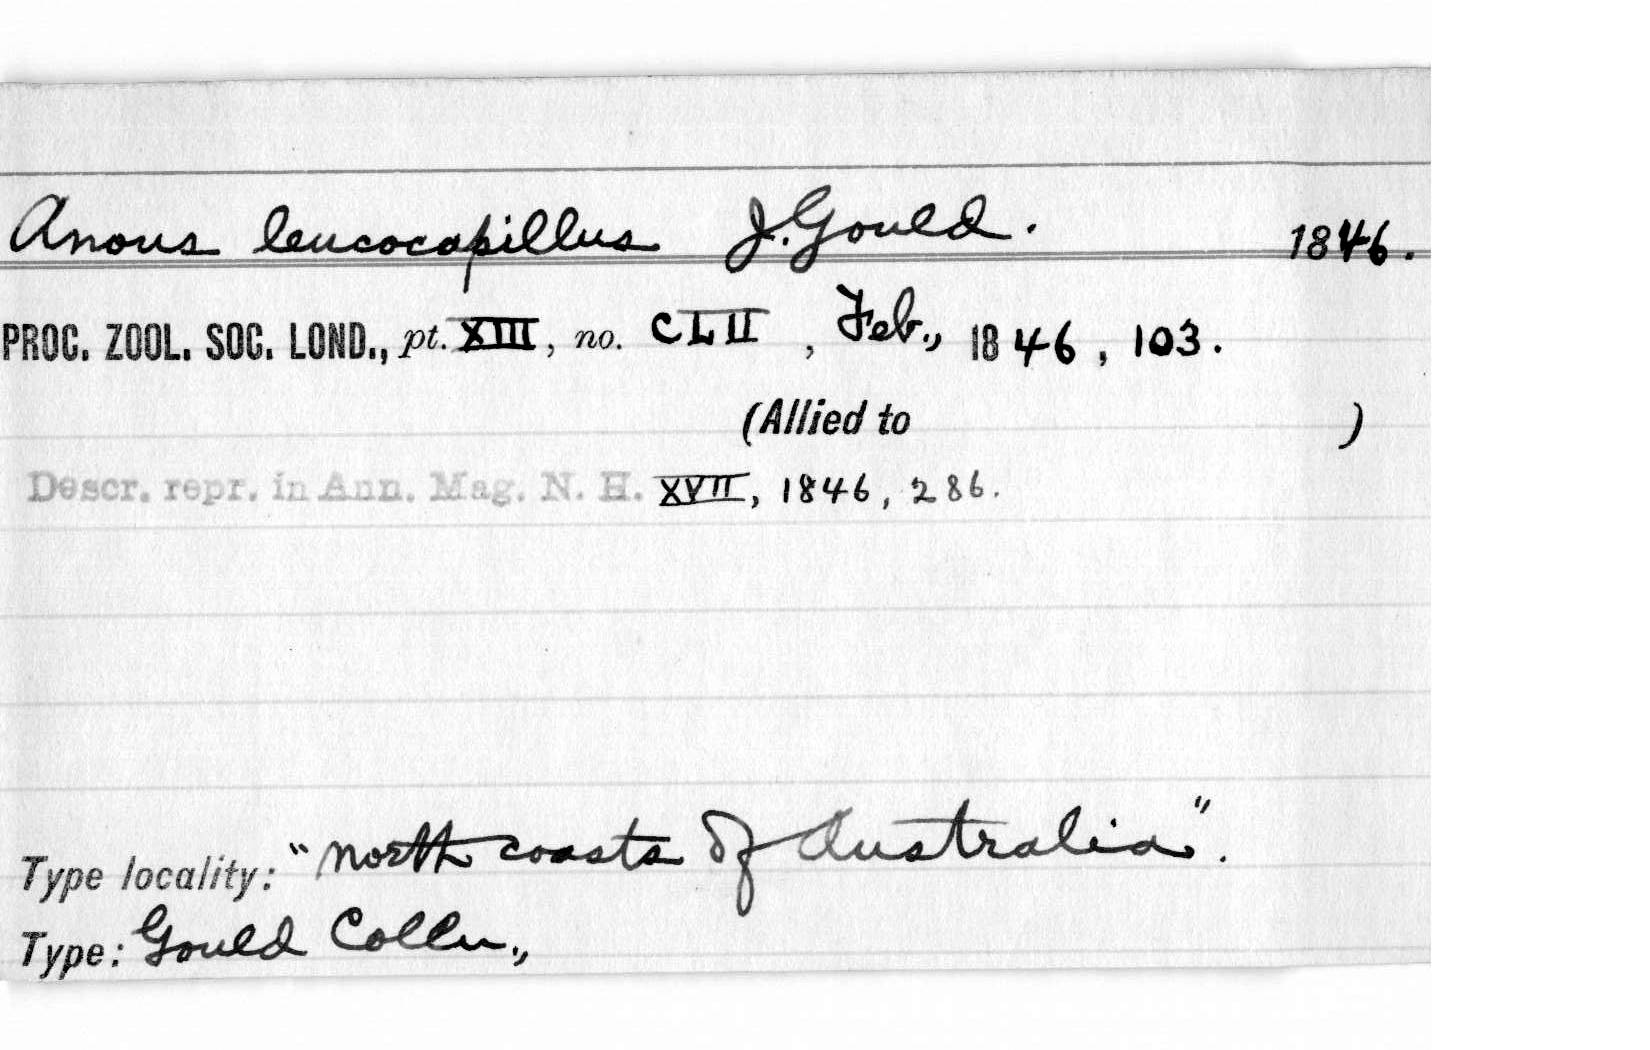 Anous leucocapillus J. Gould. 1846.
PROC. ZOOL. SOC. LOND., pt. XIII, no. CLII, Feb., 1846, 103.
(Allied to )
Descr. repr. in Ann. Mag. N. H. XVII, 1846, 286.
Type locality: "north coasts of Australia".
Type: Gould Colln.,